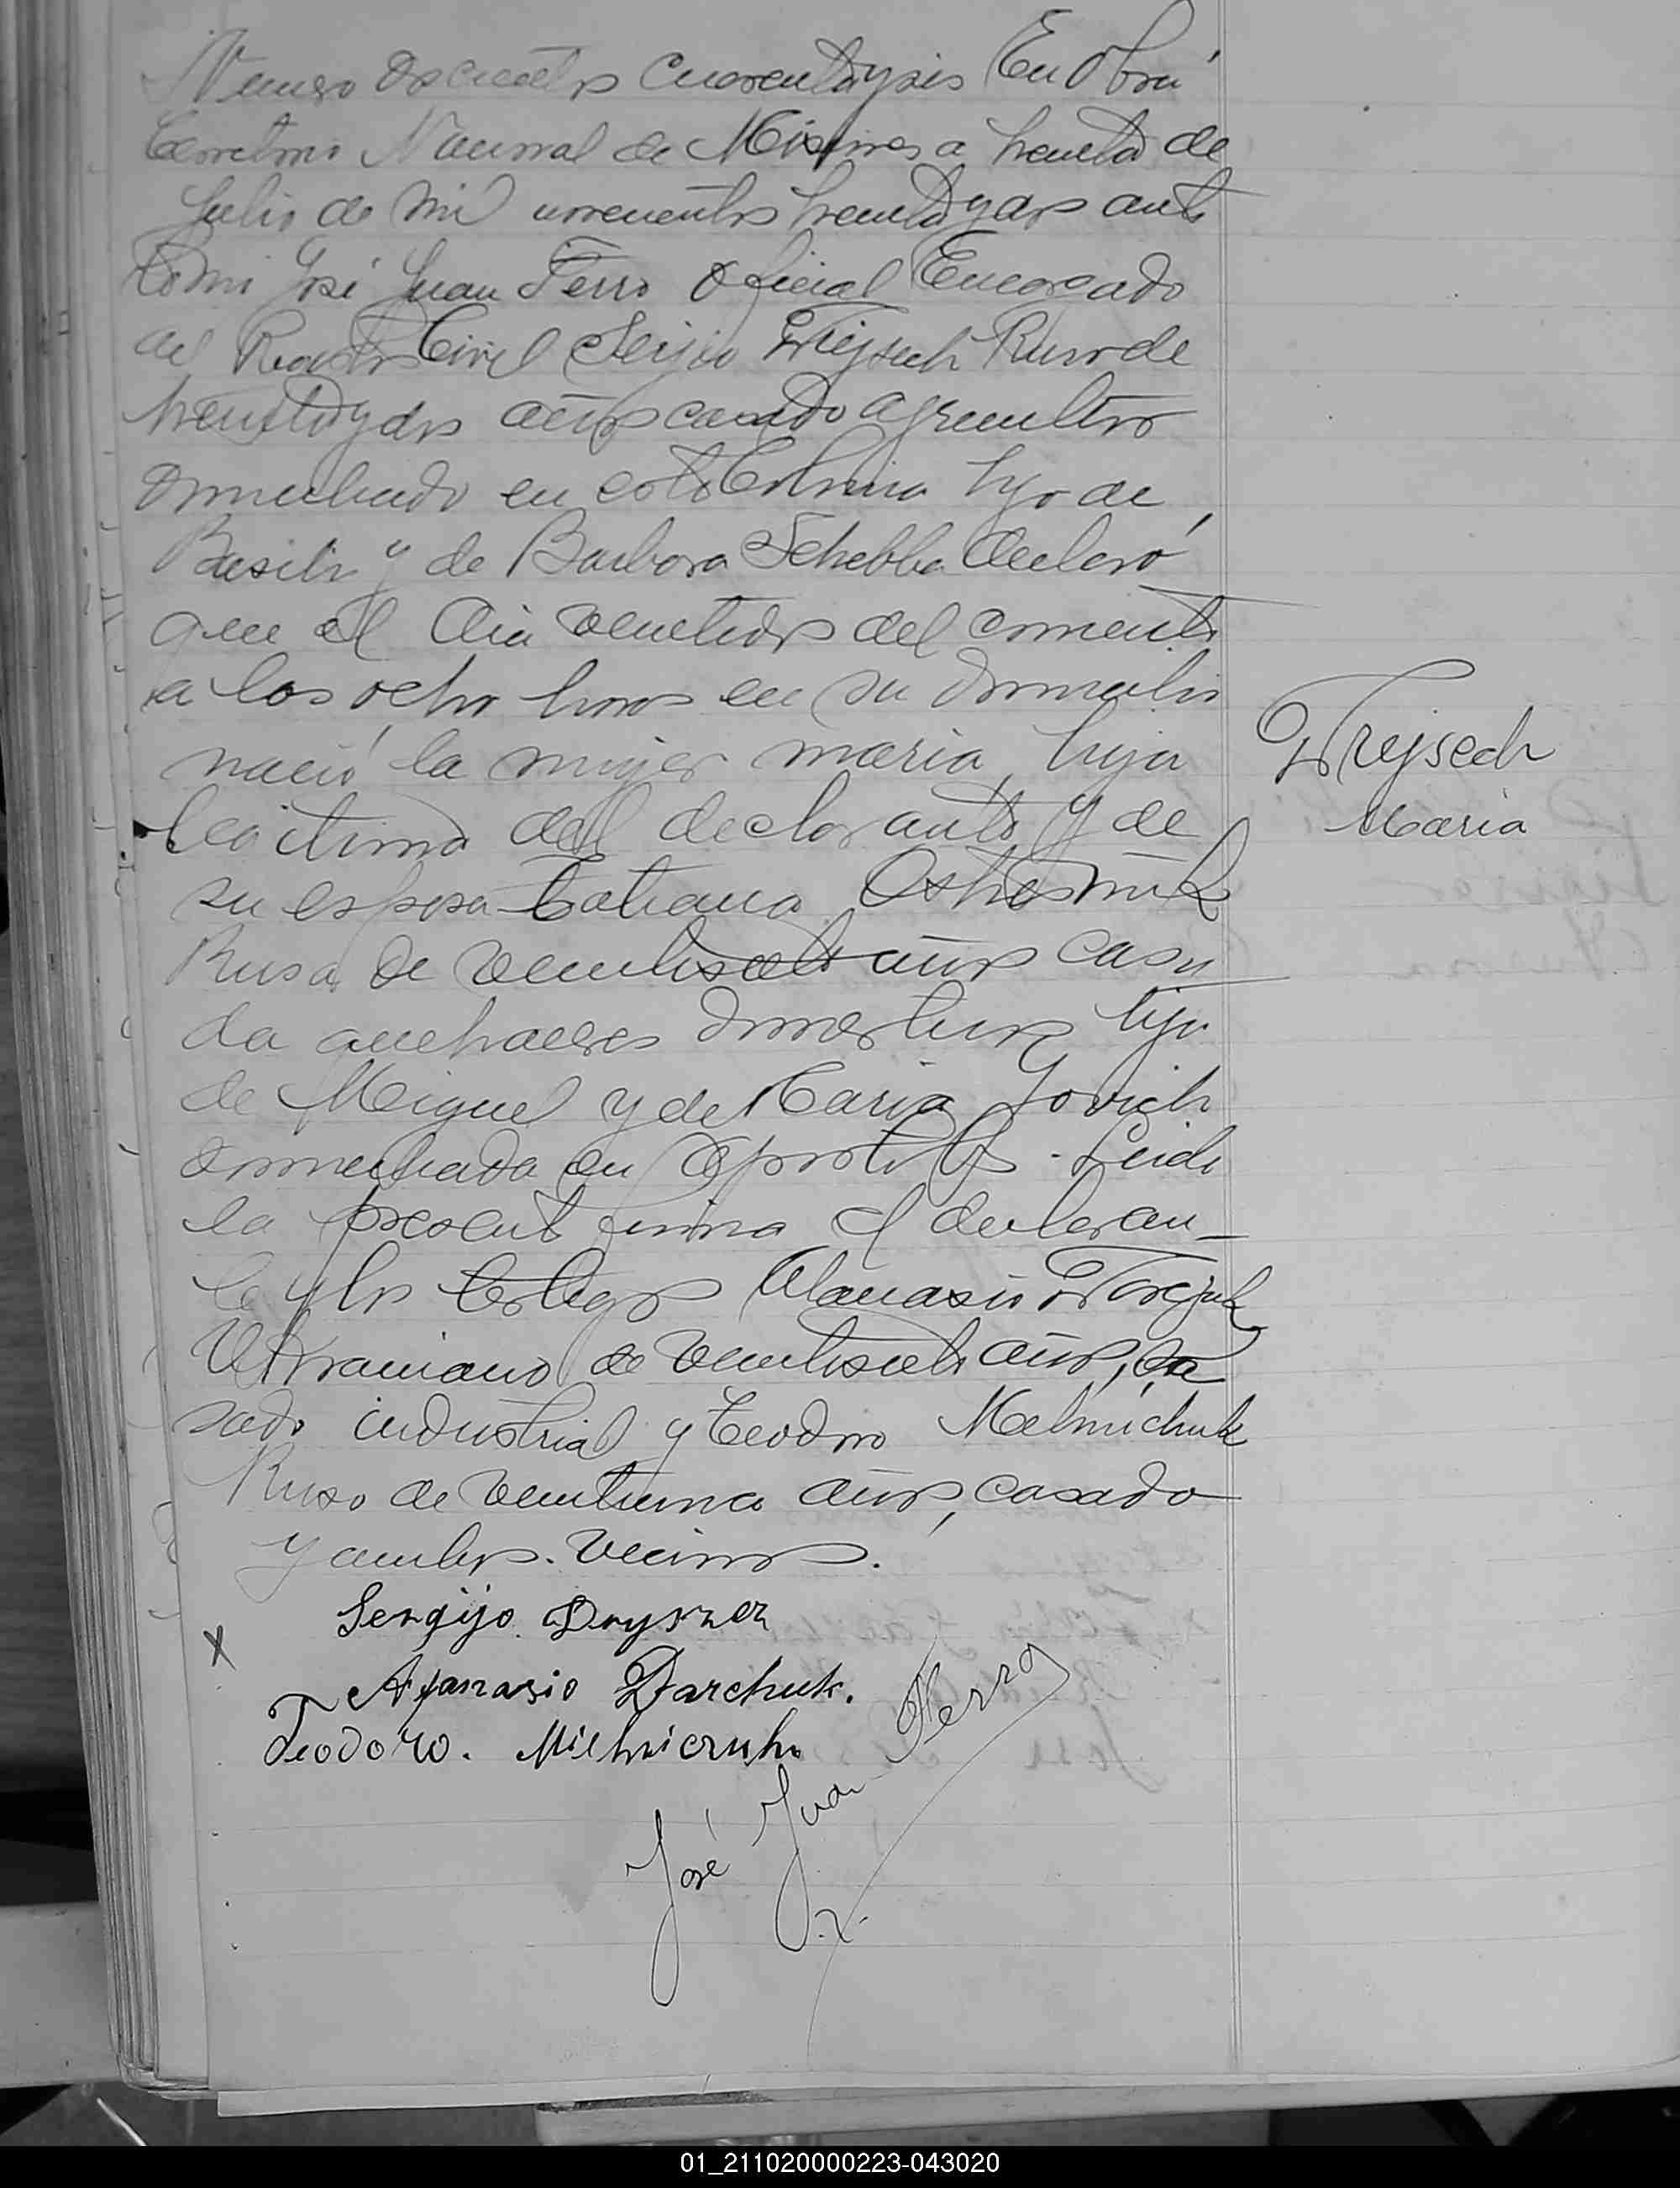 Numero doscientos cuarentayseis En Oberá
Territorio Nacional de Misiones a treinta de
Julio de mil novecientos treintaydos ante
mi José Juan Ferro Oficial Encargado
del Registro Civil Sergio Ruso de
treintaydos años casado agricultor
domiciliado en esta Colonia hijo de
Basilio y de Barbara declaró
que el dia veintidos del corriente
a las ocho horas en su domicilio
nació la mujer maria, hija
legitima del declarante y de
su esposa Tatiana
Rusa de veintisiete años casa
da quehaceres domesticos hija
de Miguel y de Maria Jovich
domiciliada en Apostoles. Leida
la presente firma el declaran_
te y los testigos Atanasio
Ukraniano de veintisiete años, ca
sado industrial y Teodoro Melnichuk
Ruso de veintiuno años, casado
y ambos vecinos.
Trejsech
Maria
Sergijo
X
Afanasio Darchuk.
Teodoro. Milniczuk
José Juan Ferro
01_211020000223-043020